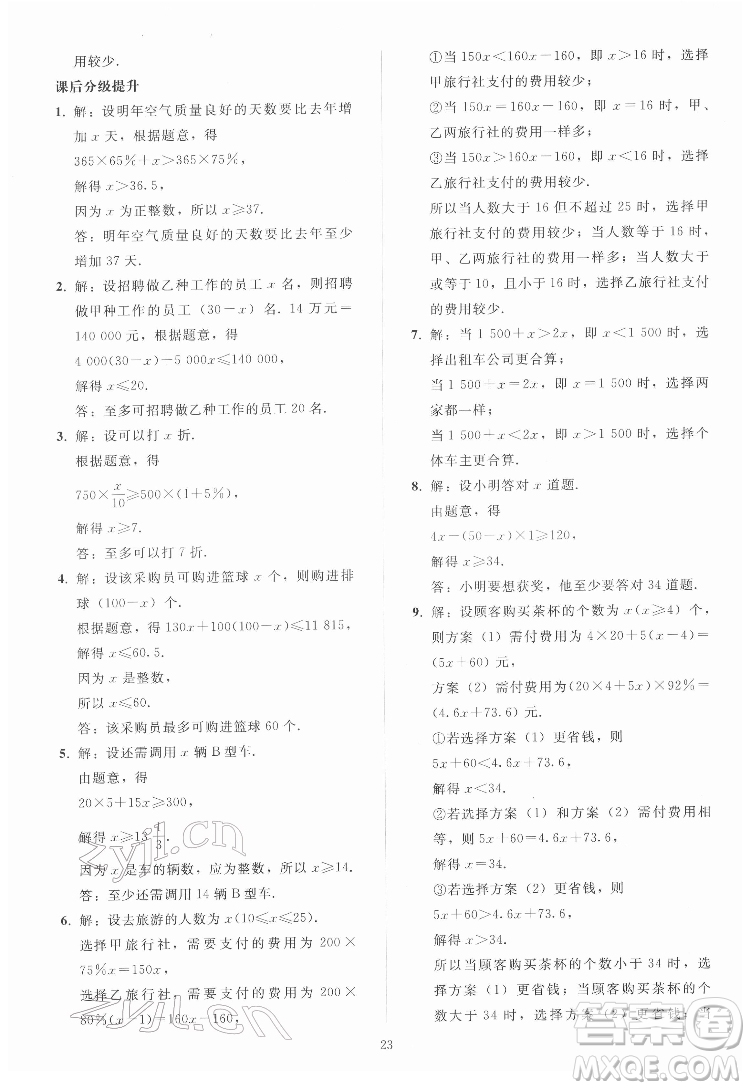 用较少.
课后分级提升
1. 解：设明年空气质量良好的天数要比去年增
加 x 天，根据题意，得
365×65％+x>365×75％，
解得 x>36.5，
因为 x 为正整数，所以 x≥37.
答：明年空气质量良好的天数要比去年至少
增加 37 天.
2. 解：设招聘做乙种工作的员工 x 名，则招聘
做甲种工作的员工（30-x）名. 14 万元=
140 000 元，根据题意，得
4 000(30-x)+5 000x≤140 000，
解得 x≤20.
答：至多可招聘做乙种工作的员工 20 名.
3. 解：设可以打 x 折.
根据题意，得
750×x/10≥500×(1+5％)，
解得 x≥7.
答：至多可以打 7 折.
4. 解：设该采购员可购进篮球 x 个，则购进排
球（100-x）个.
根据题意，得 130x+100(100-x)≤11 815，
解得 x≤60.5.
因为 x 是整数，
所以 x≤60.
答：该采购员最多可购进篮球 60 个.
5. 解：设还需调用 x 辆 B 型车.
由题意，得
20×5+15x≥300，
解得 x≥13 1/3.
因为 x 是车的辆数，应为整数，所以 x≥14.
答：至少还需调用 14 辆 B 型车.
6. 解：设去旅游的人数为 x(10≤x≤25).
选择甲旅行社，需要支付的费用为 200×
75％x=150x，
选择乙旅行社，需要支付的费用为 200×
80％(x-1)=160x-160，
①当 150x<160x-160，即 x>16 时，选择
甲旅行社支付的费用较少；
②当 150x=160x-160，即 x=16 时，甲、
乙两旅行社的费用一样多；
③当 150x>160x-160，即 x<16 时，选择
乙旅行社支付的费用较少.
所以当人数大于 16 但不超过 25 时，选择甲
旅行社支付的费用较少；当人数等于 16 时，
甲、乙两旅行社的费用一样多；当人数大于
或等于 10 且小于 16 时，选择乙旅行社支付
的费用较少.
7. 解：当 1 500+x>2x，即 x<1 500 时，选
择出租车公司更合算；
当 1 500+x=2x，即 x=1 500 时，选择两
家都一样；
当 1 500+x<2x，即 x>1 500 时，选择个
体车主更合算.
8. 解：设小明答对 x 道题.
由题意，得
4x-(50-x)×1≥120，
解得 x≥34.
答：小明要想获奖，他至少要答对 34 道题.
9. 解：设顾客购买茶杯的个数为 x(x≥4) 个，
则方案（1）需付费用为 4×20+5(x-4)=
(5x+60) 元，
方案（2）需付费用为(20×4+5x)×92％=
(4.6x+73.6) 元.
①若选择方案（1）更省钱，则
5x+60<4.6x+73.6，
解得 x<34.
②若选择方案（1）和方案（2）需付费用相
等，则 5x+60=4.6x+73.6，
解得 x=34.
③若选择方案（2）更省钱，则
5x+60>4.6x+73.6，
解得 x>34.
所以当顾客购买茶杯的个数小于 34 时，选
择方案（1）更省钱；当顾客购买茶杯的个
数大于 34 时，选择方案（2）更省钱；当
23
zyjl.cn
zyjl.cn
答案圈
MXQE.COM